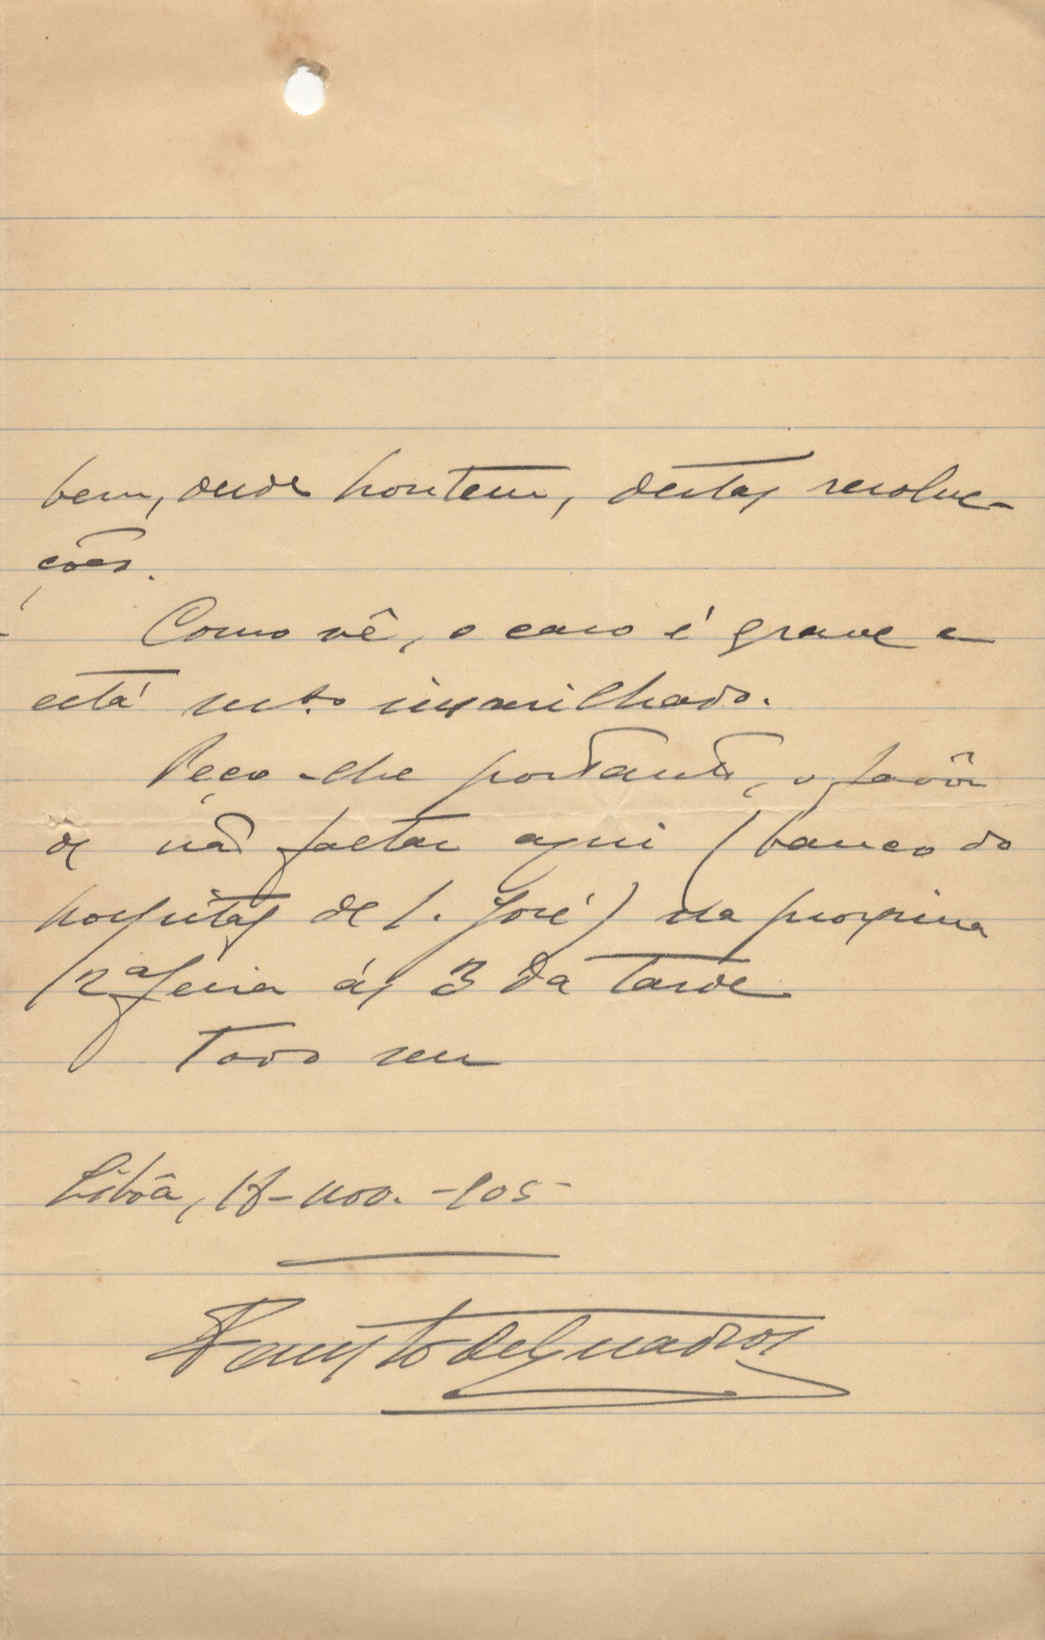 bem, desde hontem, destas resolu-
ções.
Como vê, o caso é grave e
está mto
Peço-lhe portanto, o favôr
de não faltar aqui (banco do
hospital de S. José) na proxima
2ª feira ás 3 da tarde
Todo seu
Lisbôa, nov. -905-
Fausto de Quadros